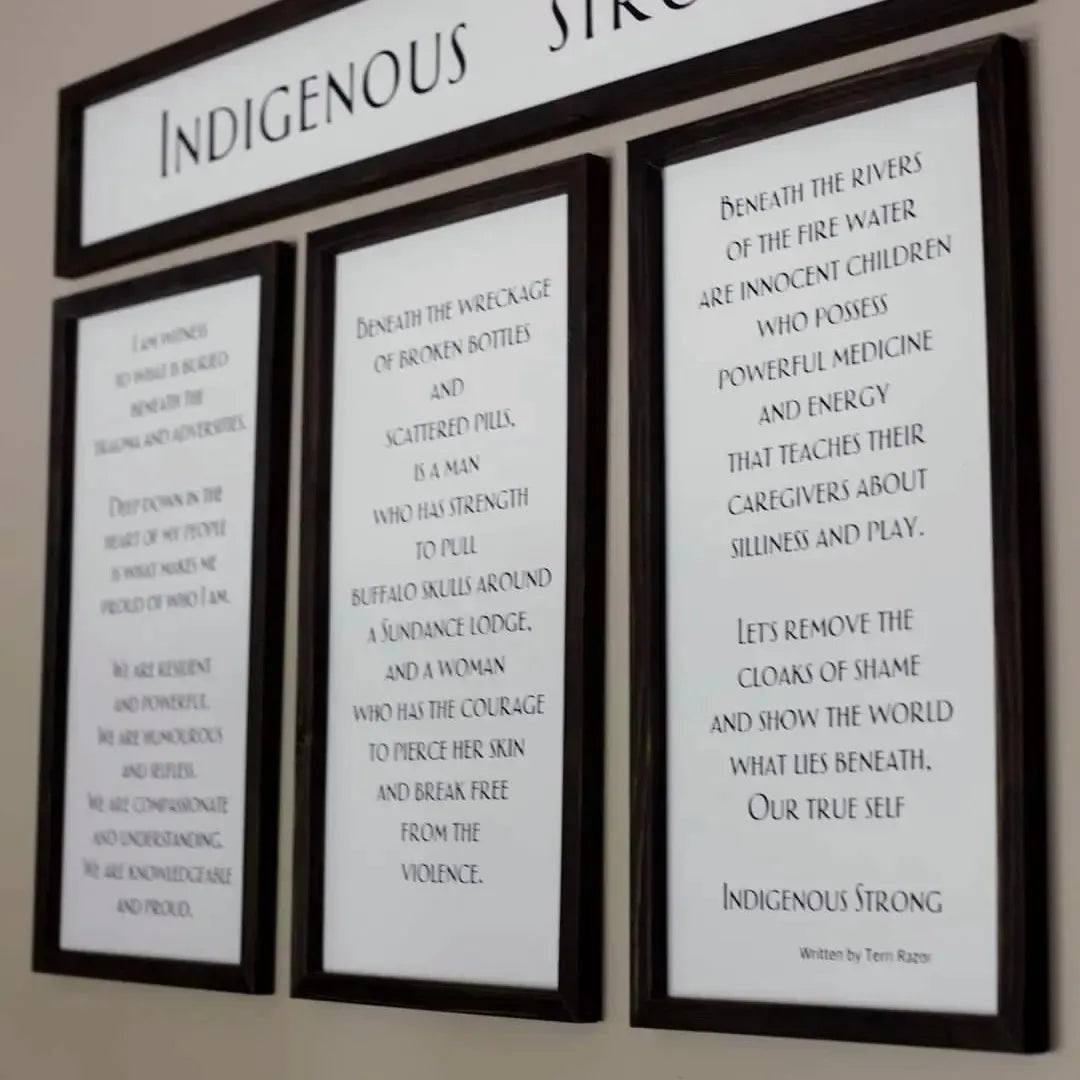 INDIGENOUS STRO
I AM WITNESS
TO WHAT IS BURIED
BENEATH THE
TRAUMA AND ADVERSITIES.
DEEP DOWN IN THE
HEART OF MY PEOPLE
IS WHAT MAKES ME
PROUD OF WHO I AM.
WE ARE RESILIENT
AND POWERFUL.
WE ARE HUMOUROUS
AND SELFLESS.
WE ARE COMPASSIONATE
AND UNDERSTANDING.
WE ARE KNOWLEDGEABLE
AND PROUD.
BENEATH THE WRECKAGE
OF BROKEN BOTTLES
AND
SCATTERED PILLS,
IS A MAN
WHO HAS STRENGTH
TO PULL
BUFFALO SKULLS AROUND
A SUNDANCE LODGE,
AND A WOMAN
WHO HAS THE COURAGE
TO PIERCE HER SKIN
AND BREAK FREE
FROM THE
VIOLENCE.
BENEATH THE RIVERS
OF THE FIRE WATER
ARE INNOCENT CHILDREN
WHO POSSESS
POWERFUL MEDICINE
AND ENERGY
THAT TEACHES THEIR
CAREGIVERS ABOUT
SILLINESS AND PLAY.
LET'S REMOVE THE
CLOAKS OF SHAME
AND SHOW THE WORLD
WHAT LIES BENEATH,
OUR TRUE SELF
INDIGENOUS STRONG
Written by Terri Razor